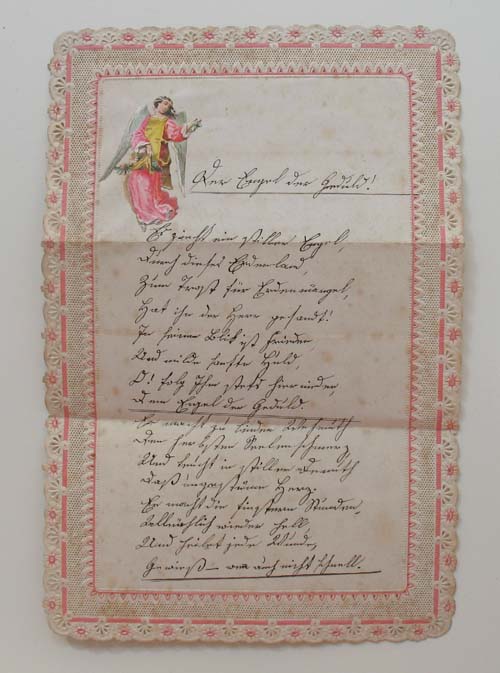 Der Engel der Geduld!
Es zieht ein stiller Engel,
Durch dieses Erdenland,
Zum Trost für Erdenmängel,
Hat ihn der Herr gesandt!
In seinem Blick ist Frieden
Und milde sanfte Huld,
O! folg Ihm stets hienieden,
Dem Engel der Geduld.
Er macht zu linder Wehmuth
Den herbsten Seelenschmerz
Und taucht in stille Demuth
Daß ungestüme Herz.
Er macht die finstern Stunden,
Allmählich wieder hell,
Und heilet jede Wunde,
Gewieß – wen auch nicht schnell.